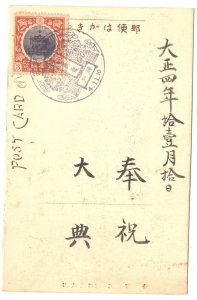 郵便はかき
大正四年拾壹月拾日
奉祝
大典
POST CARD